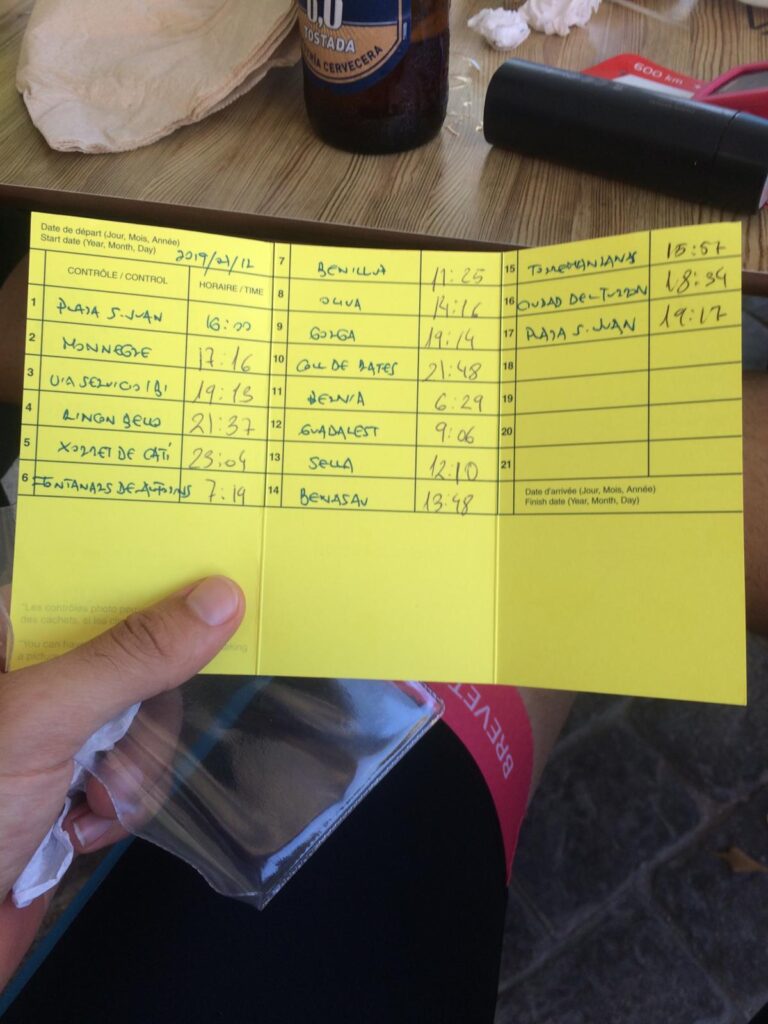 0,0
TOSTADA
CERVECERA
600 km
Date de départ (Jour, Mois, Année)
Start date (Year, Month, Day)
CONTRÔLE / CONTROL HORAIRE / TIME
1 PLAZA S. JUAN 16:00
2 MONNEGRE 17:16
3 VIA SERVICIO IBI 19:13
4 21:37
5 XORRET DE CATÍ 23:04
6 7:19
7 11:25
8 OLIVA 14:16
9 GORGA 19:14
10 COLL DE RATES 21:48
11 BERNIA 6:29
12 GUADALEST 9:06
13 SELLA 12:10
14 BENASAU 13:48
15 15:57
16 18:34
17 PLAZA S. JUAN 19:17
18
19
20
21
Date d'arrivée (Jour, Mois, Année)
Finish date (Year, Month, Day)
"Les contrôles photo
des cachets, si les
"You can
BREVET